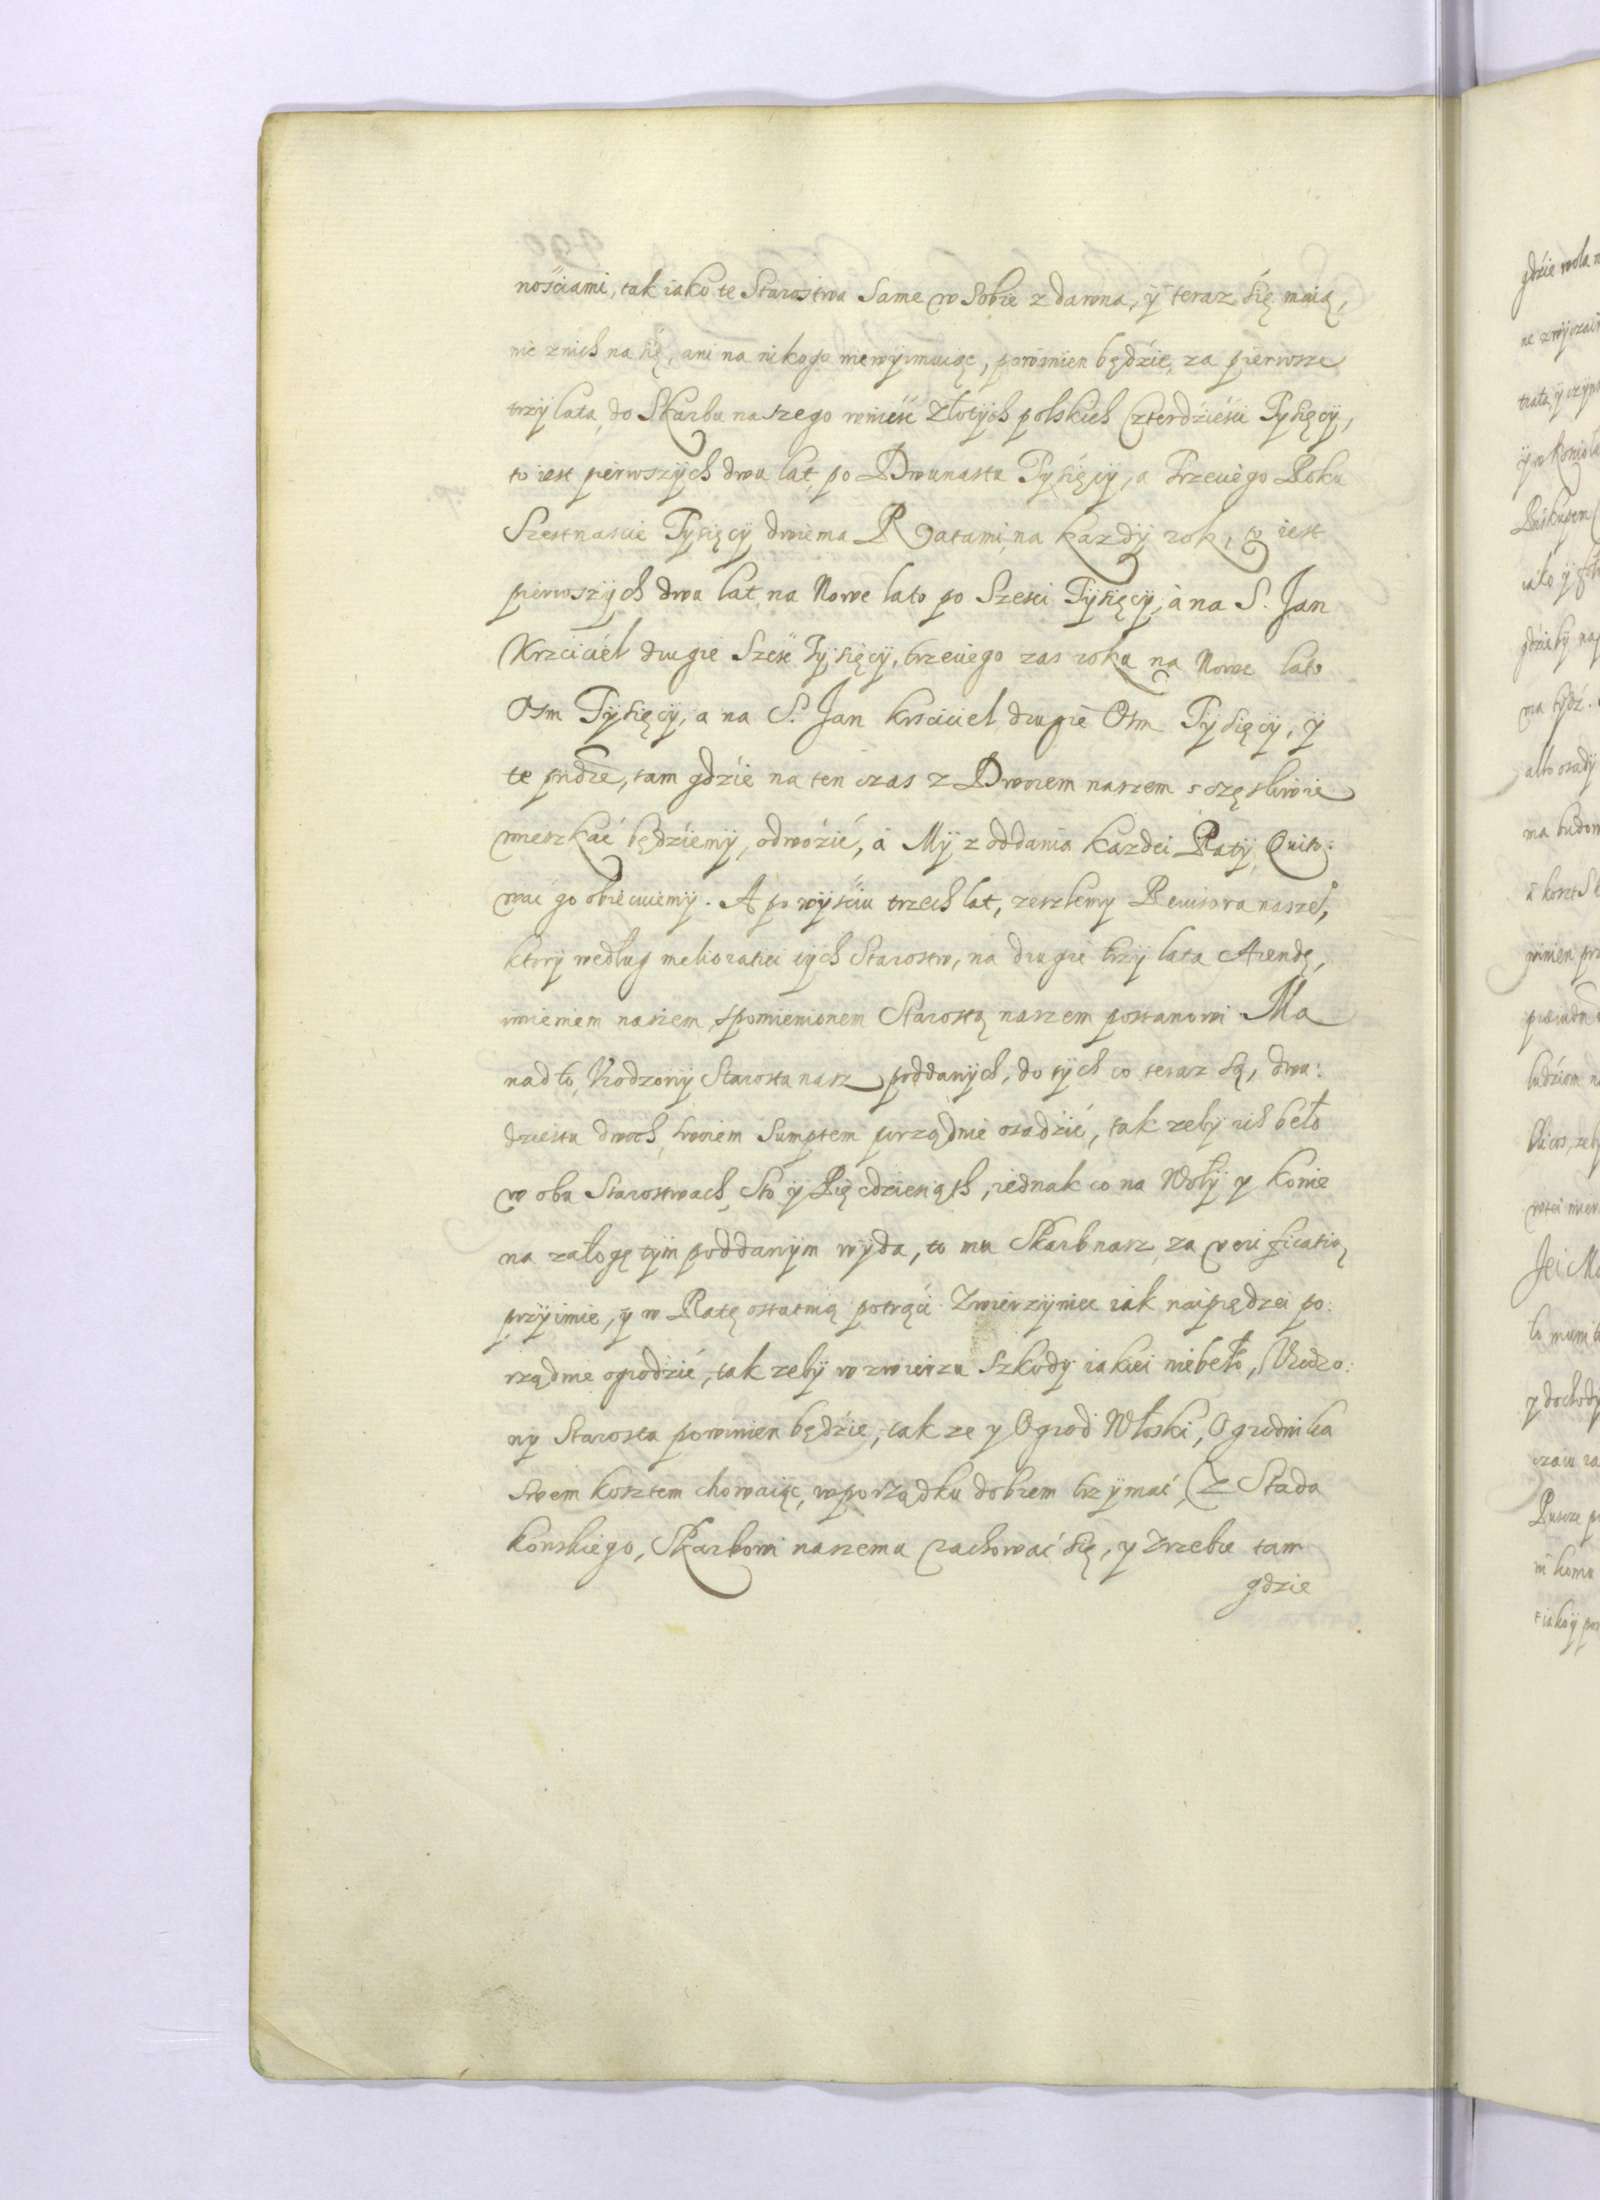 nościami, tak iako te Starostwa same w sobie z dawna, ÿ teraz się maią,
nic znich na się, ani na nikogo niewyimuiąc, powinien będzie, za pierwsze
trzÿ lata, do Skarbu naszego wnieść Złotÿch polskich Czterdzieści Tysięcÿ,
to iest pierwszÿch dwu lat, po Dwunastu Tysięcÿ, a Trzeciego Roku
Szestnascie Tysięcÿ dwiema Ratami, na kazdÿ rok, to iest
pierwszÿch dwu lat, na Nowe lato po Szesci Tysięcÿ, á na S. Jan
Krzciciel drugie Szesć Tysięcÿ, trzeciego zas roku na Nowe lato
Osm Tysięcÿ, a na S. Jan krzciciel drugie Osm Tysięcÿ, ÿ
te pndze, tam gdzie na ten czas z Dworem naszem szczęsliwie
mieszkać będziemÿ, odwozić, á Mÿ z oddania kazdei Ratÿ Quito:
wac go obiecuiemÿ. A po wÿsciu trzech lat, zeszlemÿ Rewisora nasze°,
ktorÿ według melioratiei tÿch Starostw, na drugie trzÿ lata Arendę,
imieniem naszem, spomienionem Starostą naszem postanowi Ma
nadto, Urodzonÿ Starosta nasz poddanÿch, do tÿch co teraz są, dwu:
dziestu dwoch, swoiem sumptem porządnie osadzić, tak zebÿ ich beło
w obu Starostwach, Sto ÿ Pięcdziesiąth, iednak co na Wołÿ y konie
na załogę tÿm poddanÿm wÿda, to mu Skarb nasz za werificatią
przÿimie, ÿ w Ratę ostatnią potrąci. Zwierzÿniec iak naiprędzei po:
rządnie ogrodzić, tak zebÿ w zwierzu szkodÿ iakiei niebeło, Urodzo:
nÿ Starosta powinien będzie, tak ze y Ogrod Włoski, Ogrodnika
swem kosztem chowaiąc, wporządku dobrem trzÿmać, Z Stada
konskiego, Skarbowi naszemu zachować się, y Zrzebce tam
gdzie